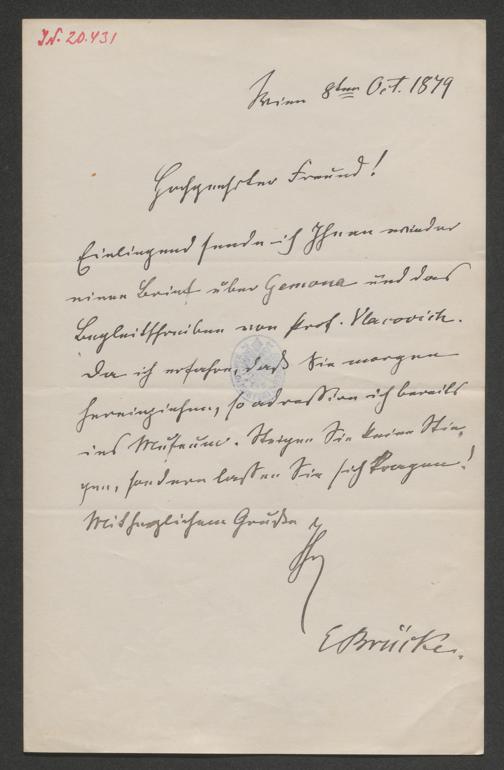 IN. 20.431
Wien 8ten Oct. 1879
Hochgeehrter Freund!
Einliegend sende ich Ihnen wieder
einen Brief über Gemona und das
Begleitschreiben von Prof. Vlacovich.
Da ich erfahre, daß Sie morgen
hereinziehen, so adressire ich bereits
ins Museum. Steigen Sie keine Stie-
gen, sondern lassen Sie sich tragen!
Mit herzlichem Gruße
Ihr
E Brücke.